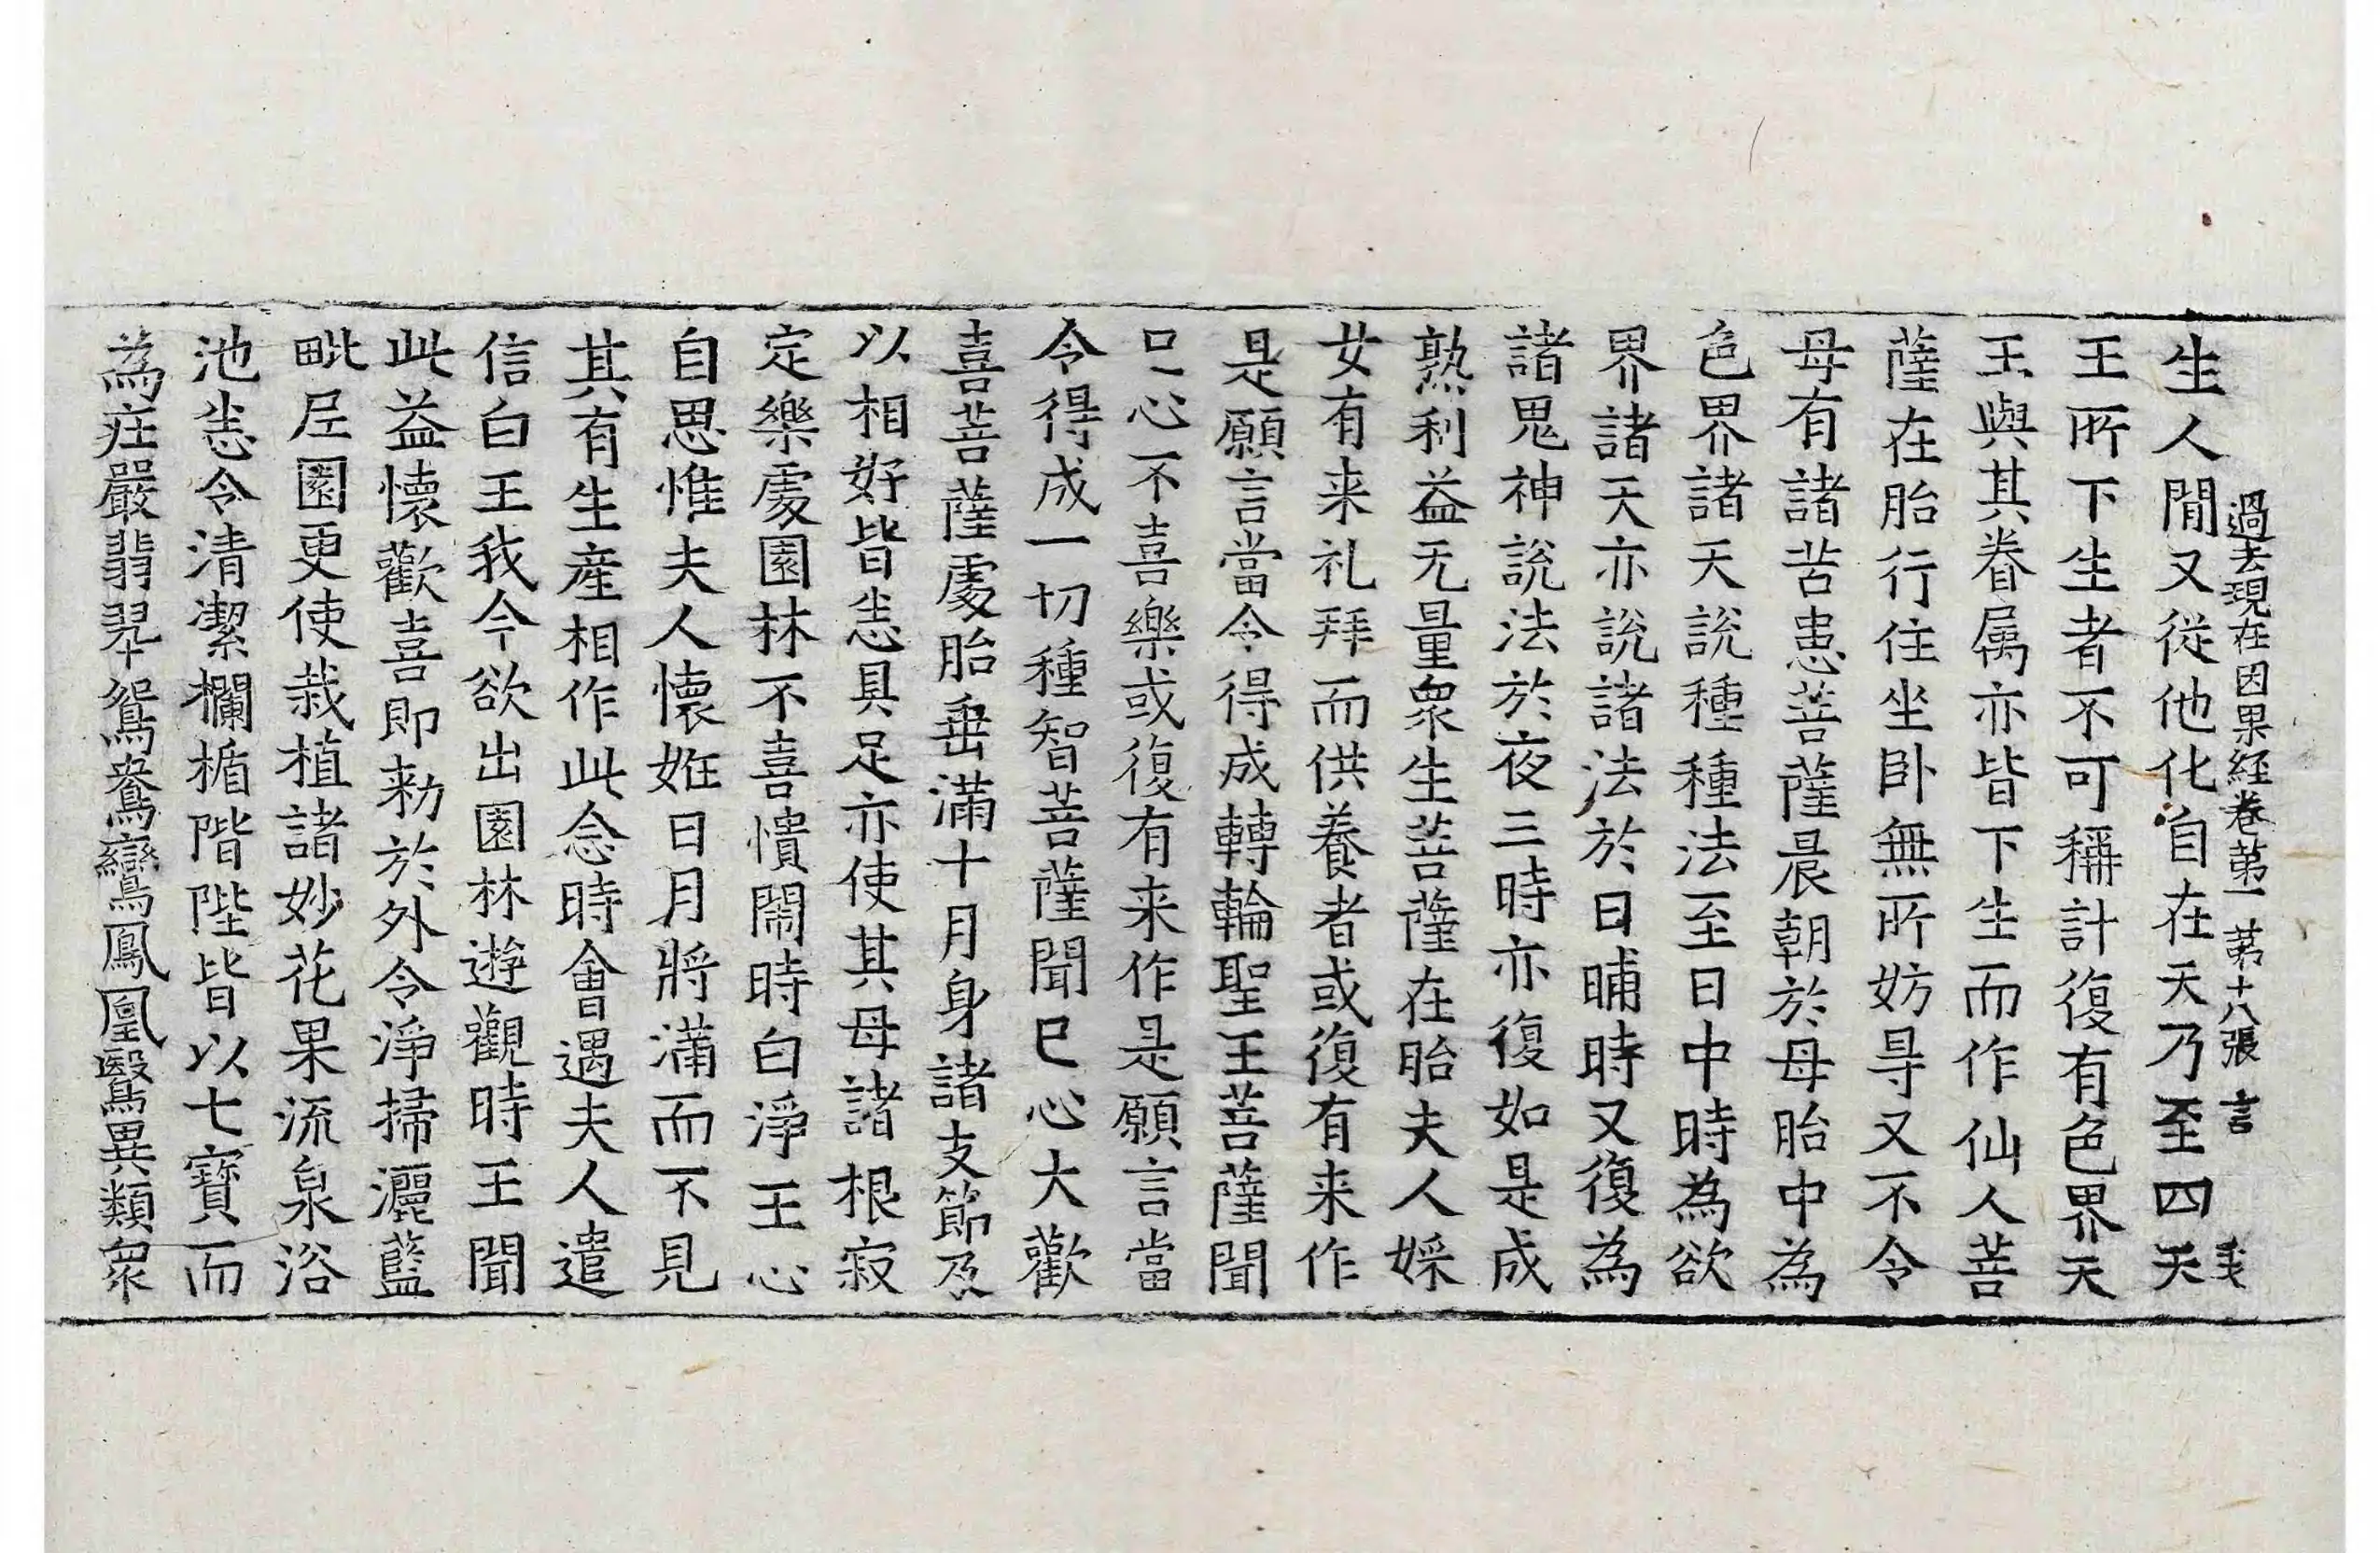 過去現在因果経卷苐一 苐十八張 言
生人閒又從他化自在天乃至四天
王所下生者不可稱計復有色界天
王與其眷属亦皆下生而作仙人菩
薩在胎行住坐卧無所妨㝵又不令
母有諸苦患菩薩晨朝於母胎中為
色界諸天說種種法至日中時為欲
界諸天亦說諸法於日晡時又復為
諸鬼神說法於夜三時亦復如是成
熟利益无量衆生菩薩在胎夫人婇
女有来礼拜而供養者或復有来作
是願言當令得成轉輪聖王菩薩聞
已心不喜樂或復有来作是願言當
令得成一切種智菩薩聞已心大歡
喜菩薩處胎垂滿十月身諸支節及
以相好皆悉具足亦使其母諸根寂
定樂處園林不喜憒閙時白淨王心
自思惟夫人懷姙日月將滿而不見
其有生産相作此念時會遇夫人遣
信白王我今欲出園林遊觀時王聞
此益懷歡喜即勑於外令淨掃灑藍
毗尼園更使栽植諸妙花果流泉浴
池悉令清潔欄楯階陛皆以七寶而
為庄嚴翡翠鴛鴦鸞鳳凰鷖異類衆